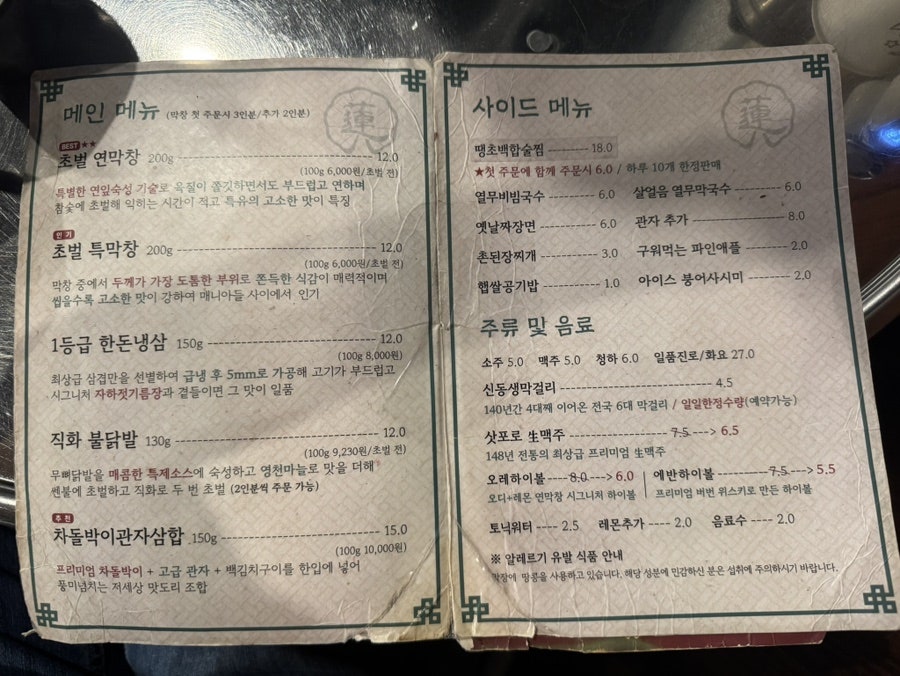 메인 메뉴 (막창 첫 주문시 3인분/추가 2인분)
蓮
BEST ★★
초벌 연막창 200g 12.0
(100g 6,000원/초벌 전)
특별한 연잎숙성 기술로 육질이 쫄깃하면서도 부드럽고 연하며
참숯에 초벌해 익히는 시간이 적고 특유의 고소한 맛이 특징
인기
초벌 특막창 200g 12.0
(100g 6,000원/초벌 전)
막창 중에서 두께가 가장 도톰한 부위로 쫀득한 식감이 매력적이며
씹을수록 고소한 맛이 강하여 매니아들 사이에서 인기
1등급 한돈냉삼 150g 12.0
(100g 8,000원)
최상급 삼겹만을 선별하여 급냉 후 5mm로 가공해 고기가 부드럽고
시그니처 자하젓기름장과 곁들이면 그 맛이 일품
직화 불닭발 130g 12.0
(100g 9,230원/초벌 전)
무뼈닭발을 매콤한 특제소스에 숙성하고 영천마늘로 맛을 더해
쎈불에 초벌하고 직화로 두 번 초벌 (2인분씩 주문 가능)
추천
차돌박이관자삼합 150g 15.0
(100g 10,000원)
프리미엄 차돌박이 + 고급 관자 + 백김치구이를 한입에 넣어
풍미넘치는 저세상 맛도리 조합
사이드 메뉴
蓮
땡초백합술찜 18.0
★첫 주문에 함께 주문시 6.0 / 하루 10개 한정판매
열무비빔국수 6.0 살얼음 열무막국수 6.0
옛날짜장면 6.0 관자 추가 8.0
촌된장찌개 3.0 구워먹는 파인애플 2.0
햅쌀공기밥 1.0 아이스 붕어사시미 2.0
주류 및 음료
소주 5.0 맥주 5.0 청하 6.0 일품진로/화요 27.0
신동생막걸리 4.5
140년간 4대째 이어온 전국 6대 막걸리 / 일일한정수량(예약가능)
삿포로 生맥주 7.5 --> 6.5
148년 전통의 최상급 프리미엄 生맥주
오레하이볼 8.0 --> 6.0 에반하이볼 7.5 --> 5.5
오디+레몬 연막창 시그니처 하이볼 프리미엄 버번 위스키로 만든 하이볼
토닉워터 2.5 레몬추가 2.0 음료수 2.0
※ 알레르기 유발 식품 안내
막장에 땅콩을 사용하고 있습니다. 해당 성분에 민감하신 분은 섭취에 주의하시기 바랍니다.